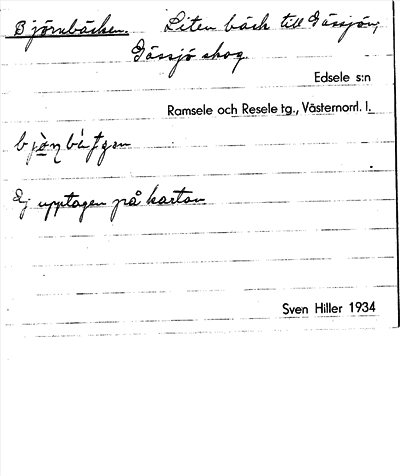 Björnbäcken. Liten bäck till Gässjön,
Gässjö skog.
Edsele s:n
Ramsele och Resele tg., Västernorrl. l.
Ej upptagen på kartan
Sven Hiller 1934